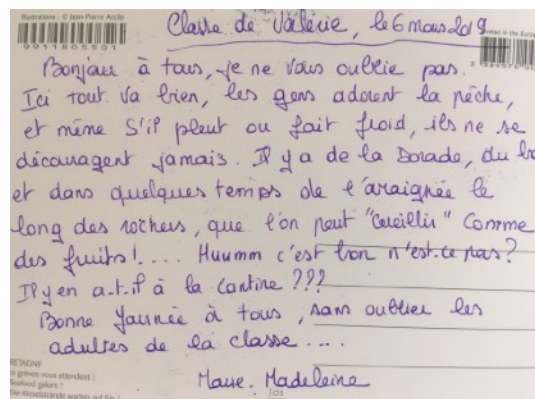 Illustrations : © Jean-Pierre Arcile
9911805501
Classe de Valérie, le 6 mars 2019
Bonjour à tous, je ne vous oublie pas.
Ici tout va bien, les gens adorent la pêche,
et même s'il pleut ou fait froid, ils ne se
découragent jamais. Il y a de la Dorade, du
et dans quelques temps de l'araignée le
long des rochers, que l'on peut "cueillir" comme
des fruits !.... Huumm c'est bon n'est-ce pas ?
Il y en a-t-il à la cantine ???
Bonne Journée à tous, sans oublier les
adultes de la classe ....
Marie-Madeleine